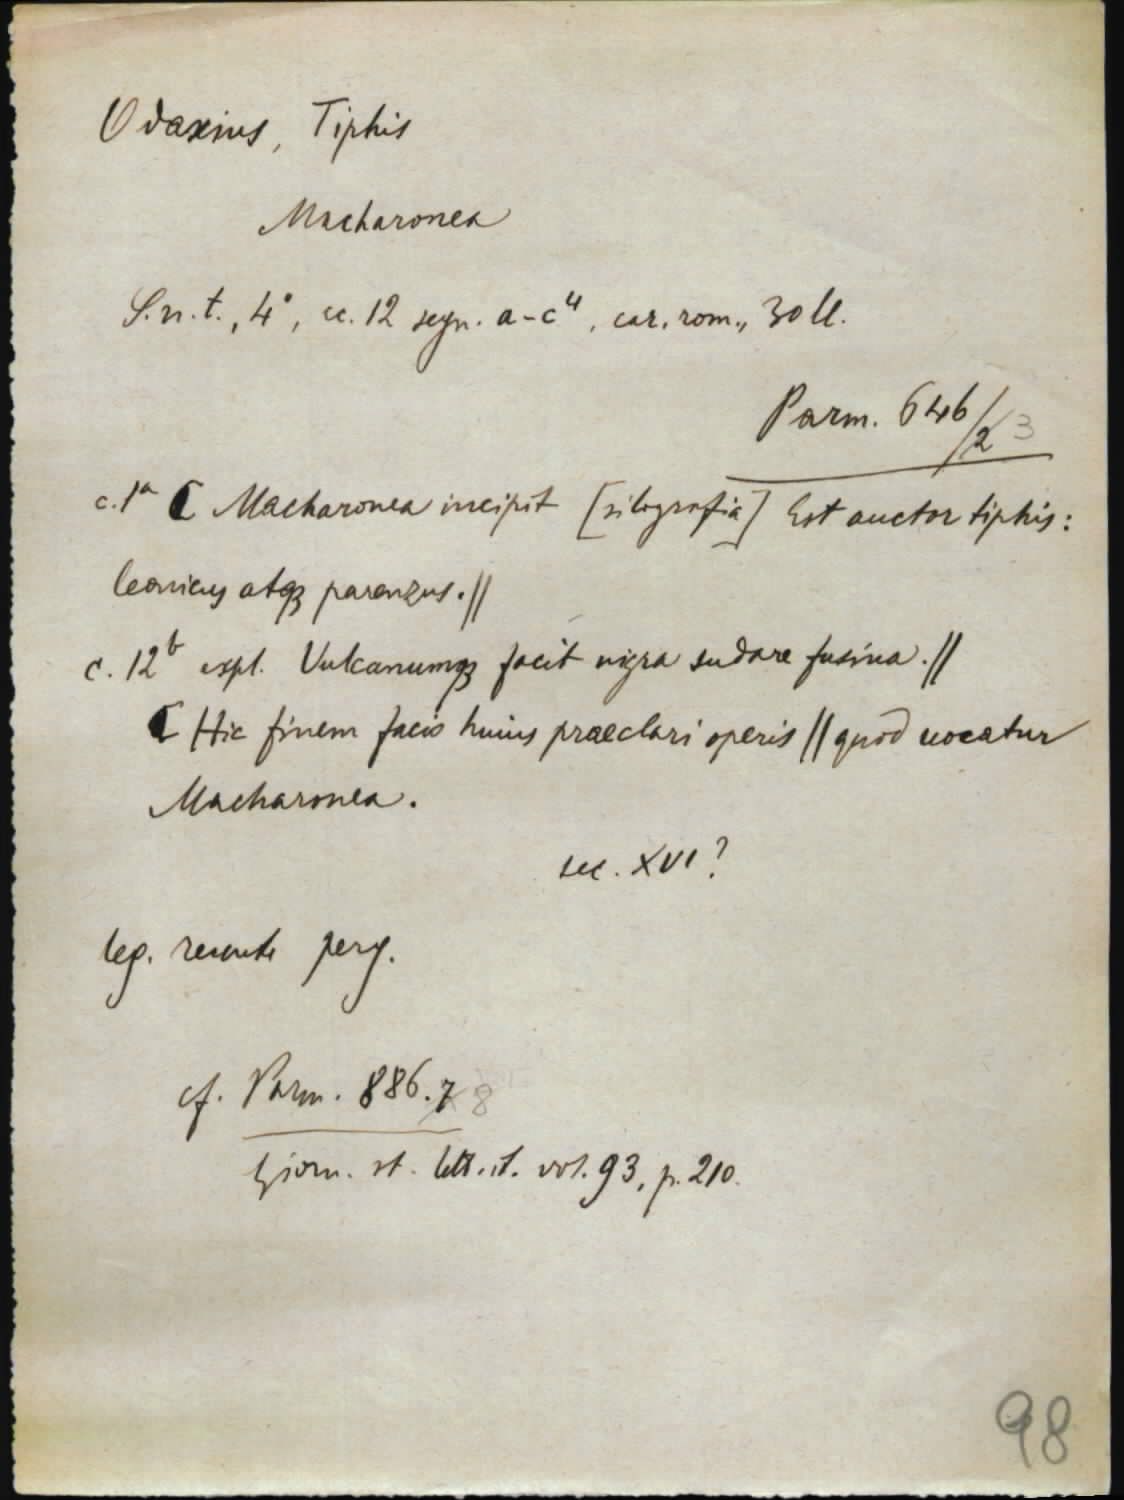 Odaxius, Tiphis
Macharonea
S.n.t., 4°, cc. 12 segn. a-c⁴, car. rom., 30 ll.
Parm. 646/2 3
c. 1ᵃ ⁋ Macharonea incipit [silografia] Est auctor tiphis:
leonicus atqꝫ parenzus.||
c. 12ᵇ expl. Vulcanumqꝫ facit nigra sudare fusina.||
⁋ Hic finem facio huius praeclari operis || quod uocatur
Macharonea.
sec. XVI?
leg. recente perg.
cf. Parm. 886.7 8
Giorn. st. lett. it. vol. 93, p. 210.
98